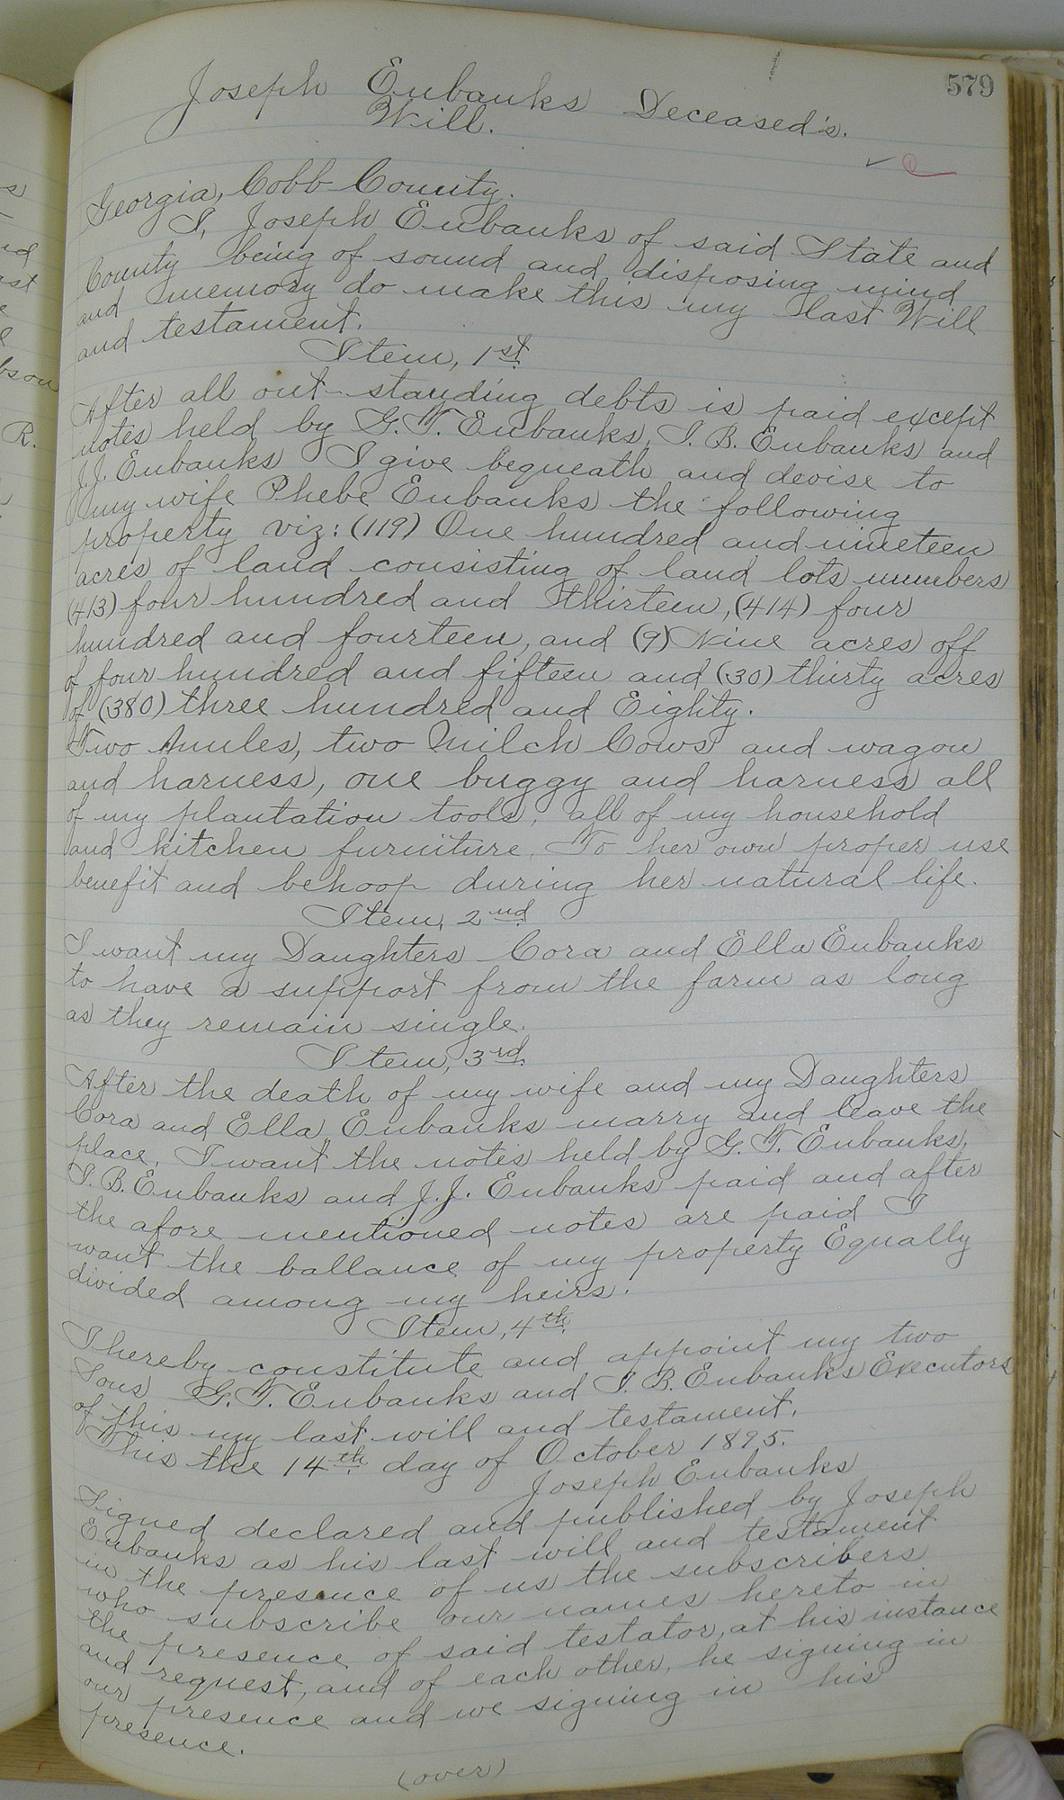 579
Joseph Eubanks Deceased's.
Will.
Georgia, Cobb County.
I, Joseph Eubanks of said State and
County being of sound and disposing mind
and memory do make this my last Will
and testament.
Item, 1st.
After all out standing debts is paid except
notes held by G. T. Eubanks, I. B. Eubanks and
J. J. Eubanks I give bequeath and devise to
my wife Phebe Eubanks the following
property viz: (119) One hundred and nineteen
acres of land consisting of land lots numbers
(413) four hundred and thirteen, (414) four
hundred and fourteen, and (9) Nine acres off
of four hundred and fifteen and (30) thirty acres
of (380) three hundred and Eighty.
Two Mules, two Milch Cows and wagon
and harness, one buggy and harness all
of my plantation tools, all of my household
and kitchen furniture. To her own proper use
benefit and behoop during her natural life.
Item, 2nd
I want my Daughters Cora and Ella Eubanks
to have a support from the farm as long
as they remain single.
Item, 3rd.
After the death of my wife and my Daughters
Cora and Ella Eubanks marry and leave the
place, I want the notes held by G. T. Eubanks,
I. B. Eubanks and J. J. Eubanks paid and after
the afore mentioned notes are paid I
want the ballance of my property Equally
divided among my heirs.
Item, 4th.
I hereby constitute and appoint my two
Sons G. T. Eubanks and I. B. Eubanks Executors
of this my last will and testament.
This the 14th day of October 1895.
Joseph Eubanks
Signed declared and published by Joseph
Eubanks as his last will and testament
in the presence of us the subscribers
who subscribe our names hereto in
the presence of said testator, at his instance
and request, and of each other, he signing in
our presence and we signing in his
presence.
(over)